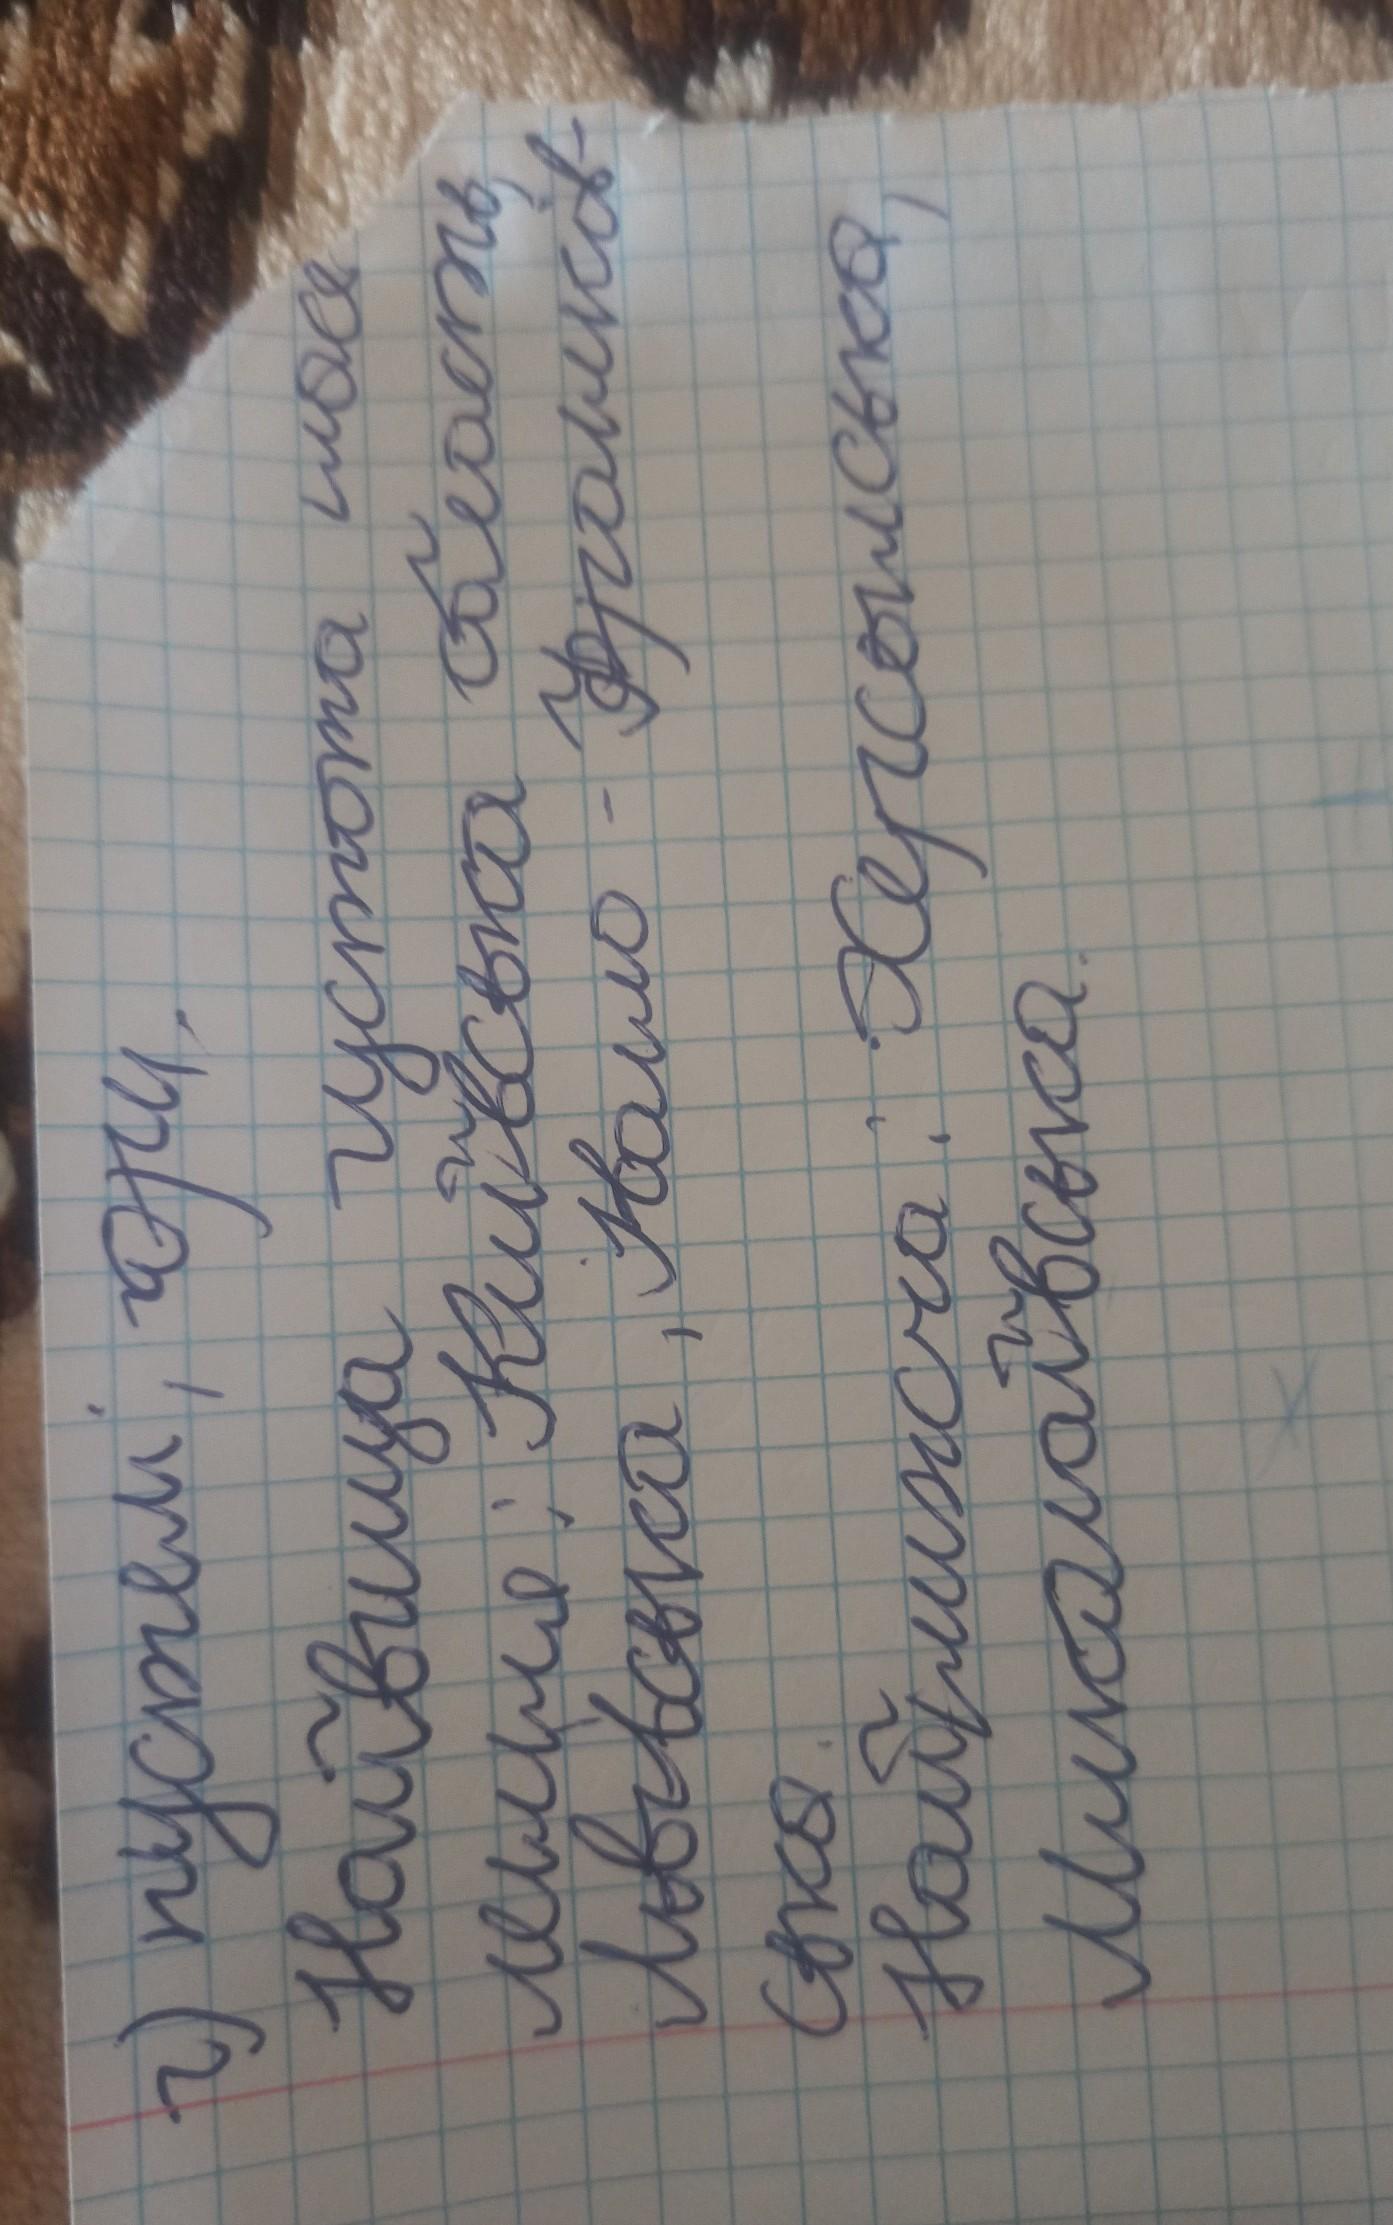 г) пустелі, ДРЦ.
Найвища густота насе
лення: Київська область,
Львівська, Івано-Франків-
ська.
Найнижча: Херсонська,
Миколаївська.